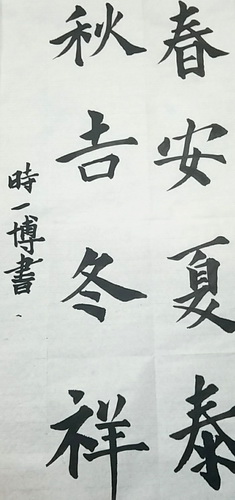 春安夏泰
秋吉冬祥
時一博書